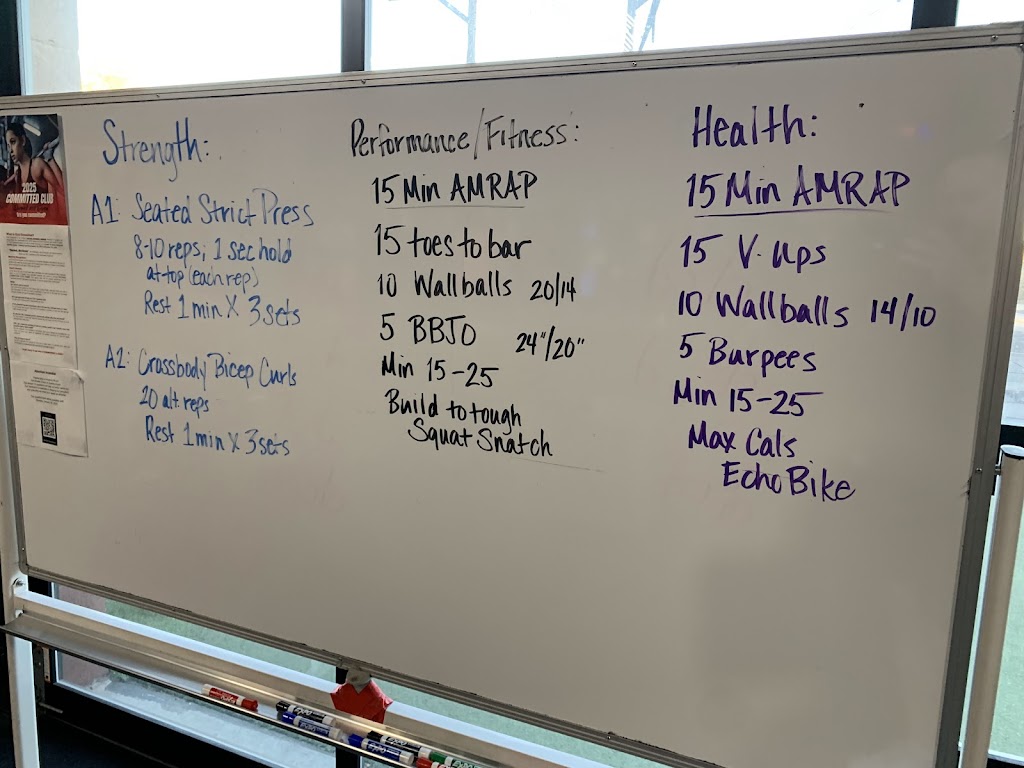 2025
COMMITTED CLUB
Strength:
A1: Seated Strict Press
8-10 reps; 1 sec hold
at top (each rep)
Rest 1 min X 3 sets
A2: Crossbody Bicep Curls
20 alt. reps
Rest 1 min X 3 sets
Performance/Fitness:
15 Min AMRAP
15 toes to bar
10 Wallballs 20/14
5 BBJO 24"/20"
Min 15-25
Build to tough
Squat Snatch
Health:
15 Min AMRAP
15 V-Ups
10 Wallballs 14/10
5 Burpees
Min 15-25
Max Cals
Echo Bike